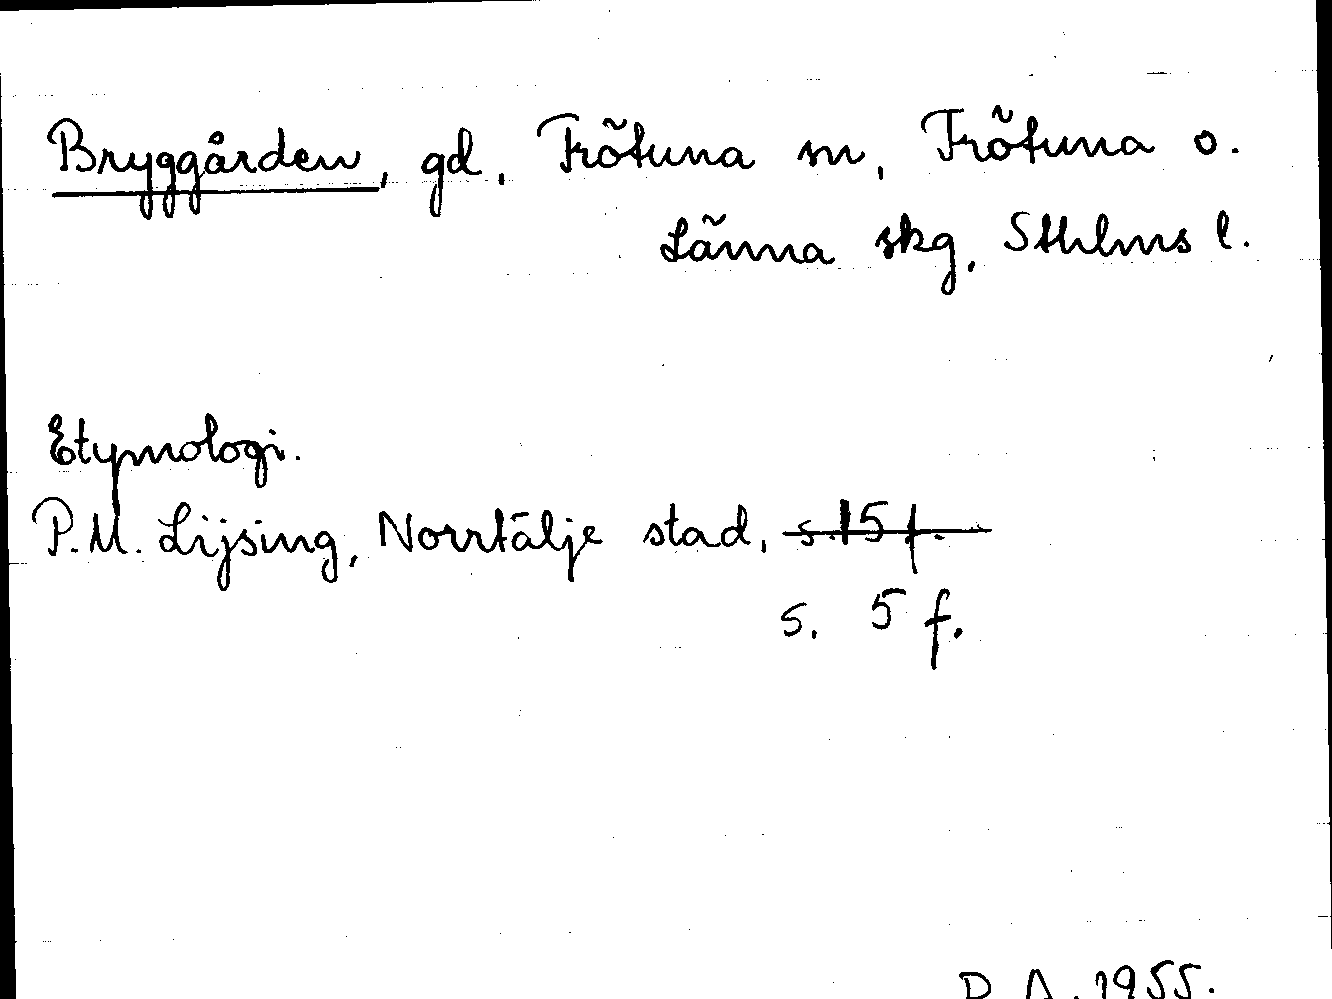 Bryggården, gd, Frötuna sn, Frötuna o.
Länna skg, Sthlms l.
Etymologi.
P.M. Lijsing, Norrtälje stad, s. 15 f.
s. 5 f.
1955.